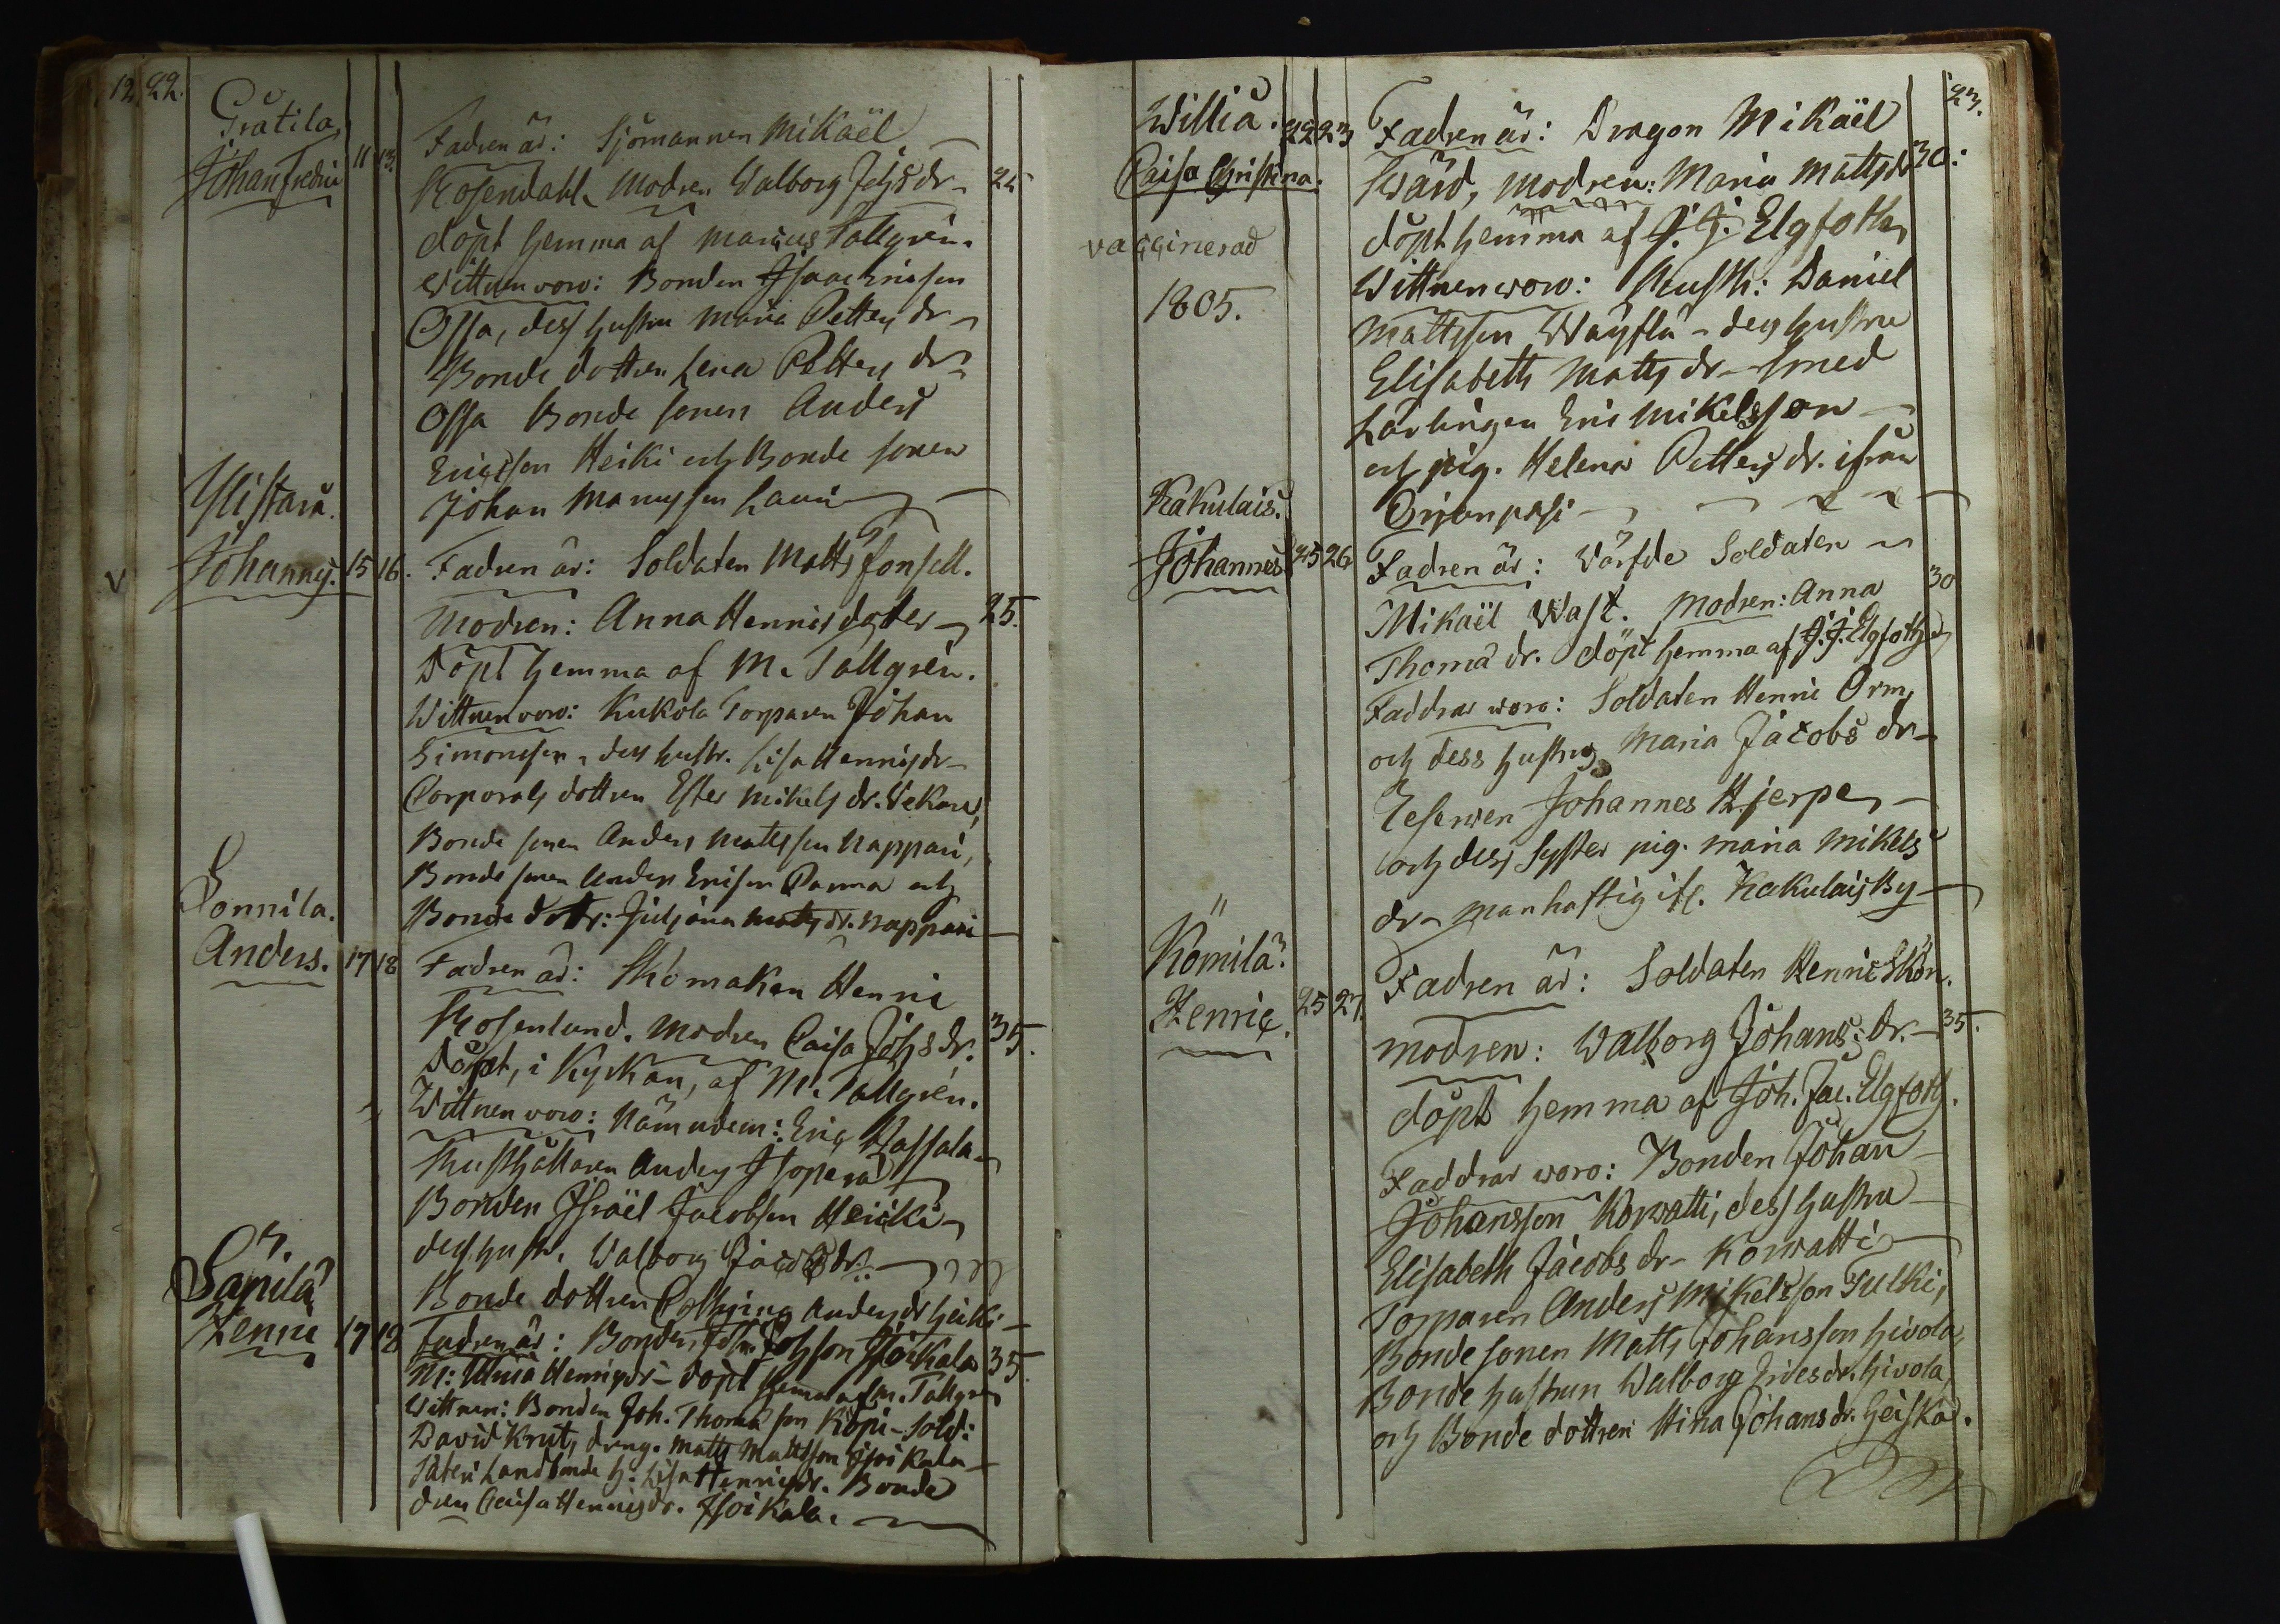 12 22.
Gråtila,
Johan Fredric 11 13. Fadren är: Sjömannen Mikaël
Rosendahl. Modren Walborg Johs dr 24
döpt hemma af Marcus Tallgrén.
Wittnen woro: Bonden Isaac Ericsson
Ossa, dess hustru Maria Petters dr
Bonde dottren Lena Petters dr
Ossa Bonde sonen Anders
Ericsson Heiki och Bonde sonen
Johan Manusson Lauri
Ylistarå.
V Johannes. 15 16. Fadren är: Soldaten Matts Fonsell.
Modren: Anna Henricsdotter 25.
Döpt hemma af M. Tallgrén.
Wittnen woro: Kukola Torparen Johan
Simonsson, dess hustr. Lisa Henricsdr
Corporals dottren Ester Mikels dr. Wekara,
Bonde sonen Anders Mattsson Nappari,
Bonde sonen Anders Ericsson Panna och
Bonde dottr: Juliana Matts dr. Nappari
Sonnila.
Anders. 17 18 Fadren är: Skomakan Henric
Rosenlund. Modren Caisa Johs dr. 35.
Döpt, i Kyrkan, af M. Tallgrén.
Wittnen woro: Nämndem: Eric Rassala
Rusthållaren Anders Isopera
Bonden Israël Jacobsson Heicki
dess hustr. Walborg Jacobs dr.
Bonde dottren Cathrina Anders dr Heiki
Sapila
Henric 17 18 Fadren är: Bonden Joh. Johsson Isoikala 35
M: Ulrica Henrics dr döpt hemma af M. Tallgren
Wittnen: Bonden Joh. Thomasson Köpi - Sold:
David Krut, dreng. Matts Mattsson Isoikala
Säteri Landbonde h: Lisa Henricsdr. Bonde
dren Caisa Henricsdr. Isoikala.
23.
Willia. 22 23 Fadren är: Dragon Mikäel
Caisa Christina. Swärd, Modren: Maria Mattsdr 30.
döpt hemma af J. J. Elgfoth
vaccinerad
Wittnen woro: Rusth: Daniel
1805.
Mattsson Wäyflä - dess hustru
Elisabeth Matts dr - Smed
Lärlingen Eric Mikelsson
och pig. Helena Petters dr. ifrån
Orjanpasi
Kakulais.
Johannes 25 26 Fadren är: Värfde Soldaten
Mikaël Wast. Modren: Anna 30
Thoma dr. döpt hemma af J. J. Elgfoth
Faddrar woro: Soldaten Henric Orm,
och dess hustru Maria Jacobs dr
Reserven Johannes Hjerpe,
och dess Syster pig. Maria Mikels
dr. manhaftig ifr. Kakulais By
Komila.
Henric. 25 27. Fadren är: Soldaten Henric Skön.
modren: Walborg Johans: dr. 35.
döpt hemma af Joh. Jac. Elgfoth.
Faddrar woro: Bonden Johan
Johansson Korvatti, dess hustru
Elisabeth Jacobs dr - Korvatti
Torparen Anders Mikelsson Tulki,
Bonde sonen Matts Johansson Hivola,
Bonde hustrun Walborg Fries dr. Hivola,
och Bonde dottren Stina Johans dr. Heiska.